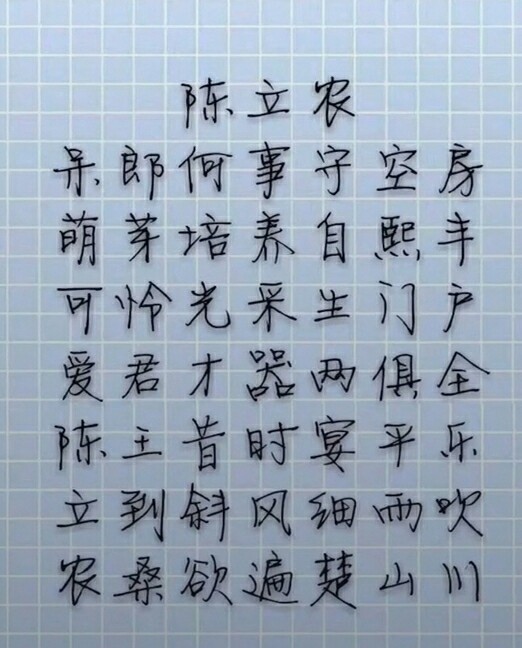 陈立农
呆郎何事守空房
萌芽培养自熙丰
可怜光采生门户
爱君才器两俱全
陈王昔时宴平乐
立到斜风细雨吹
农桑欲遍楚山川